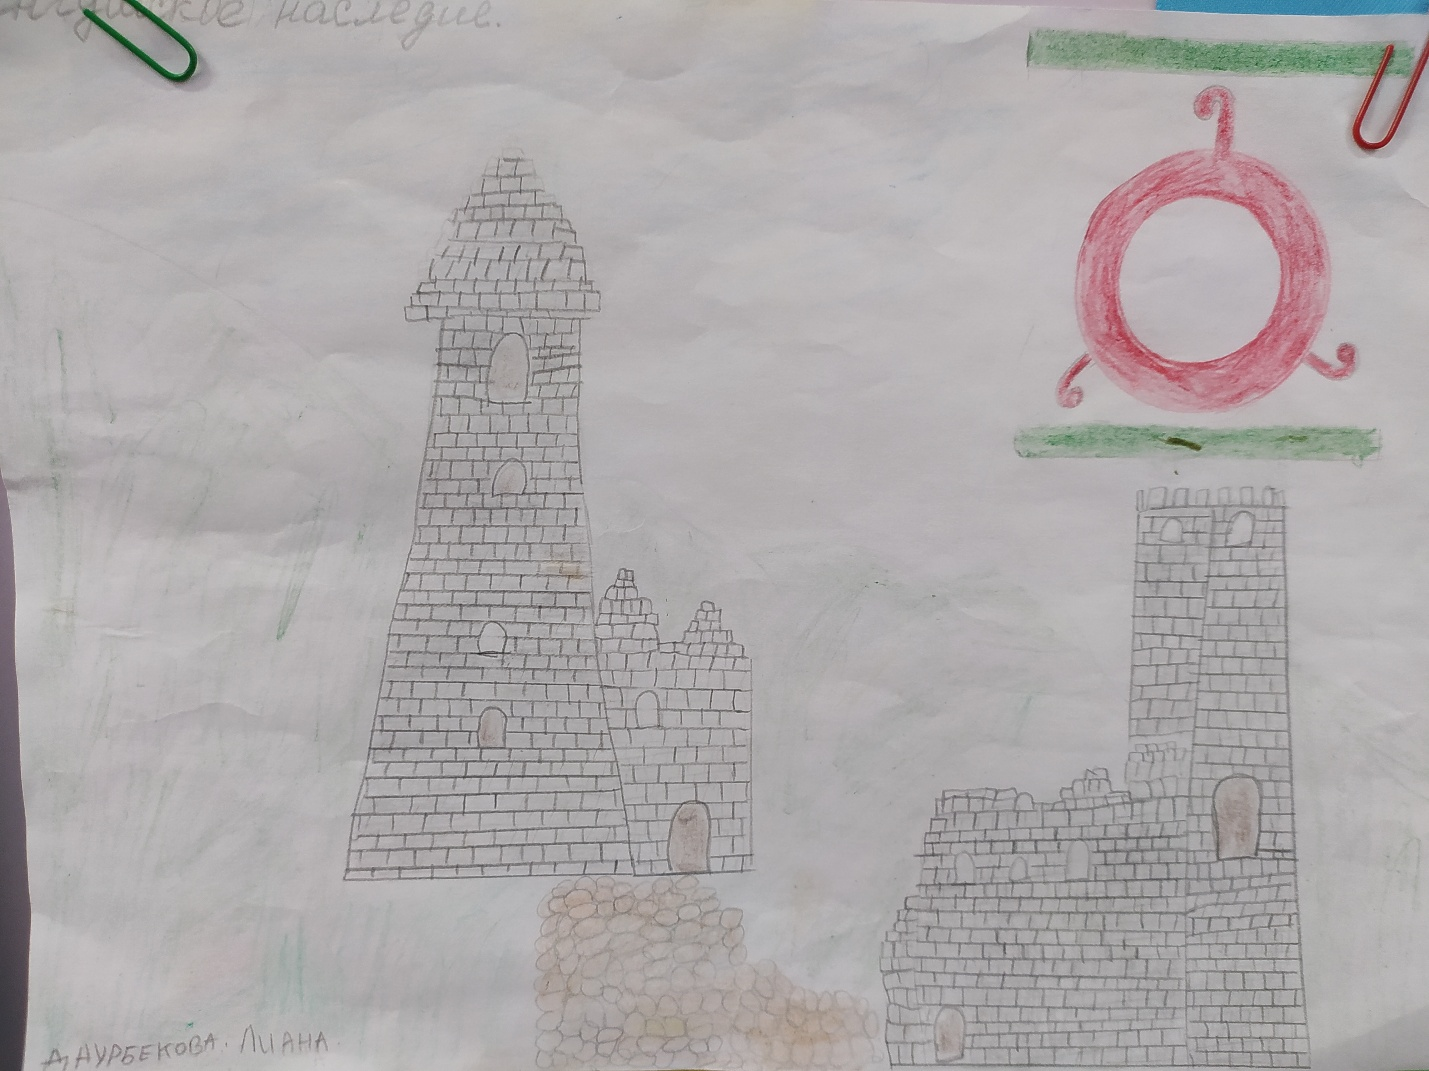 Ингушское наследие.
Даурбекова. Лиана